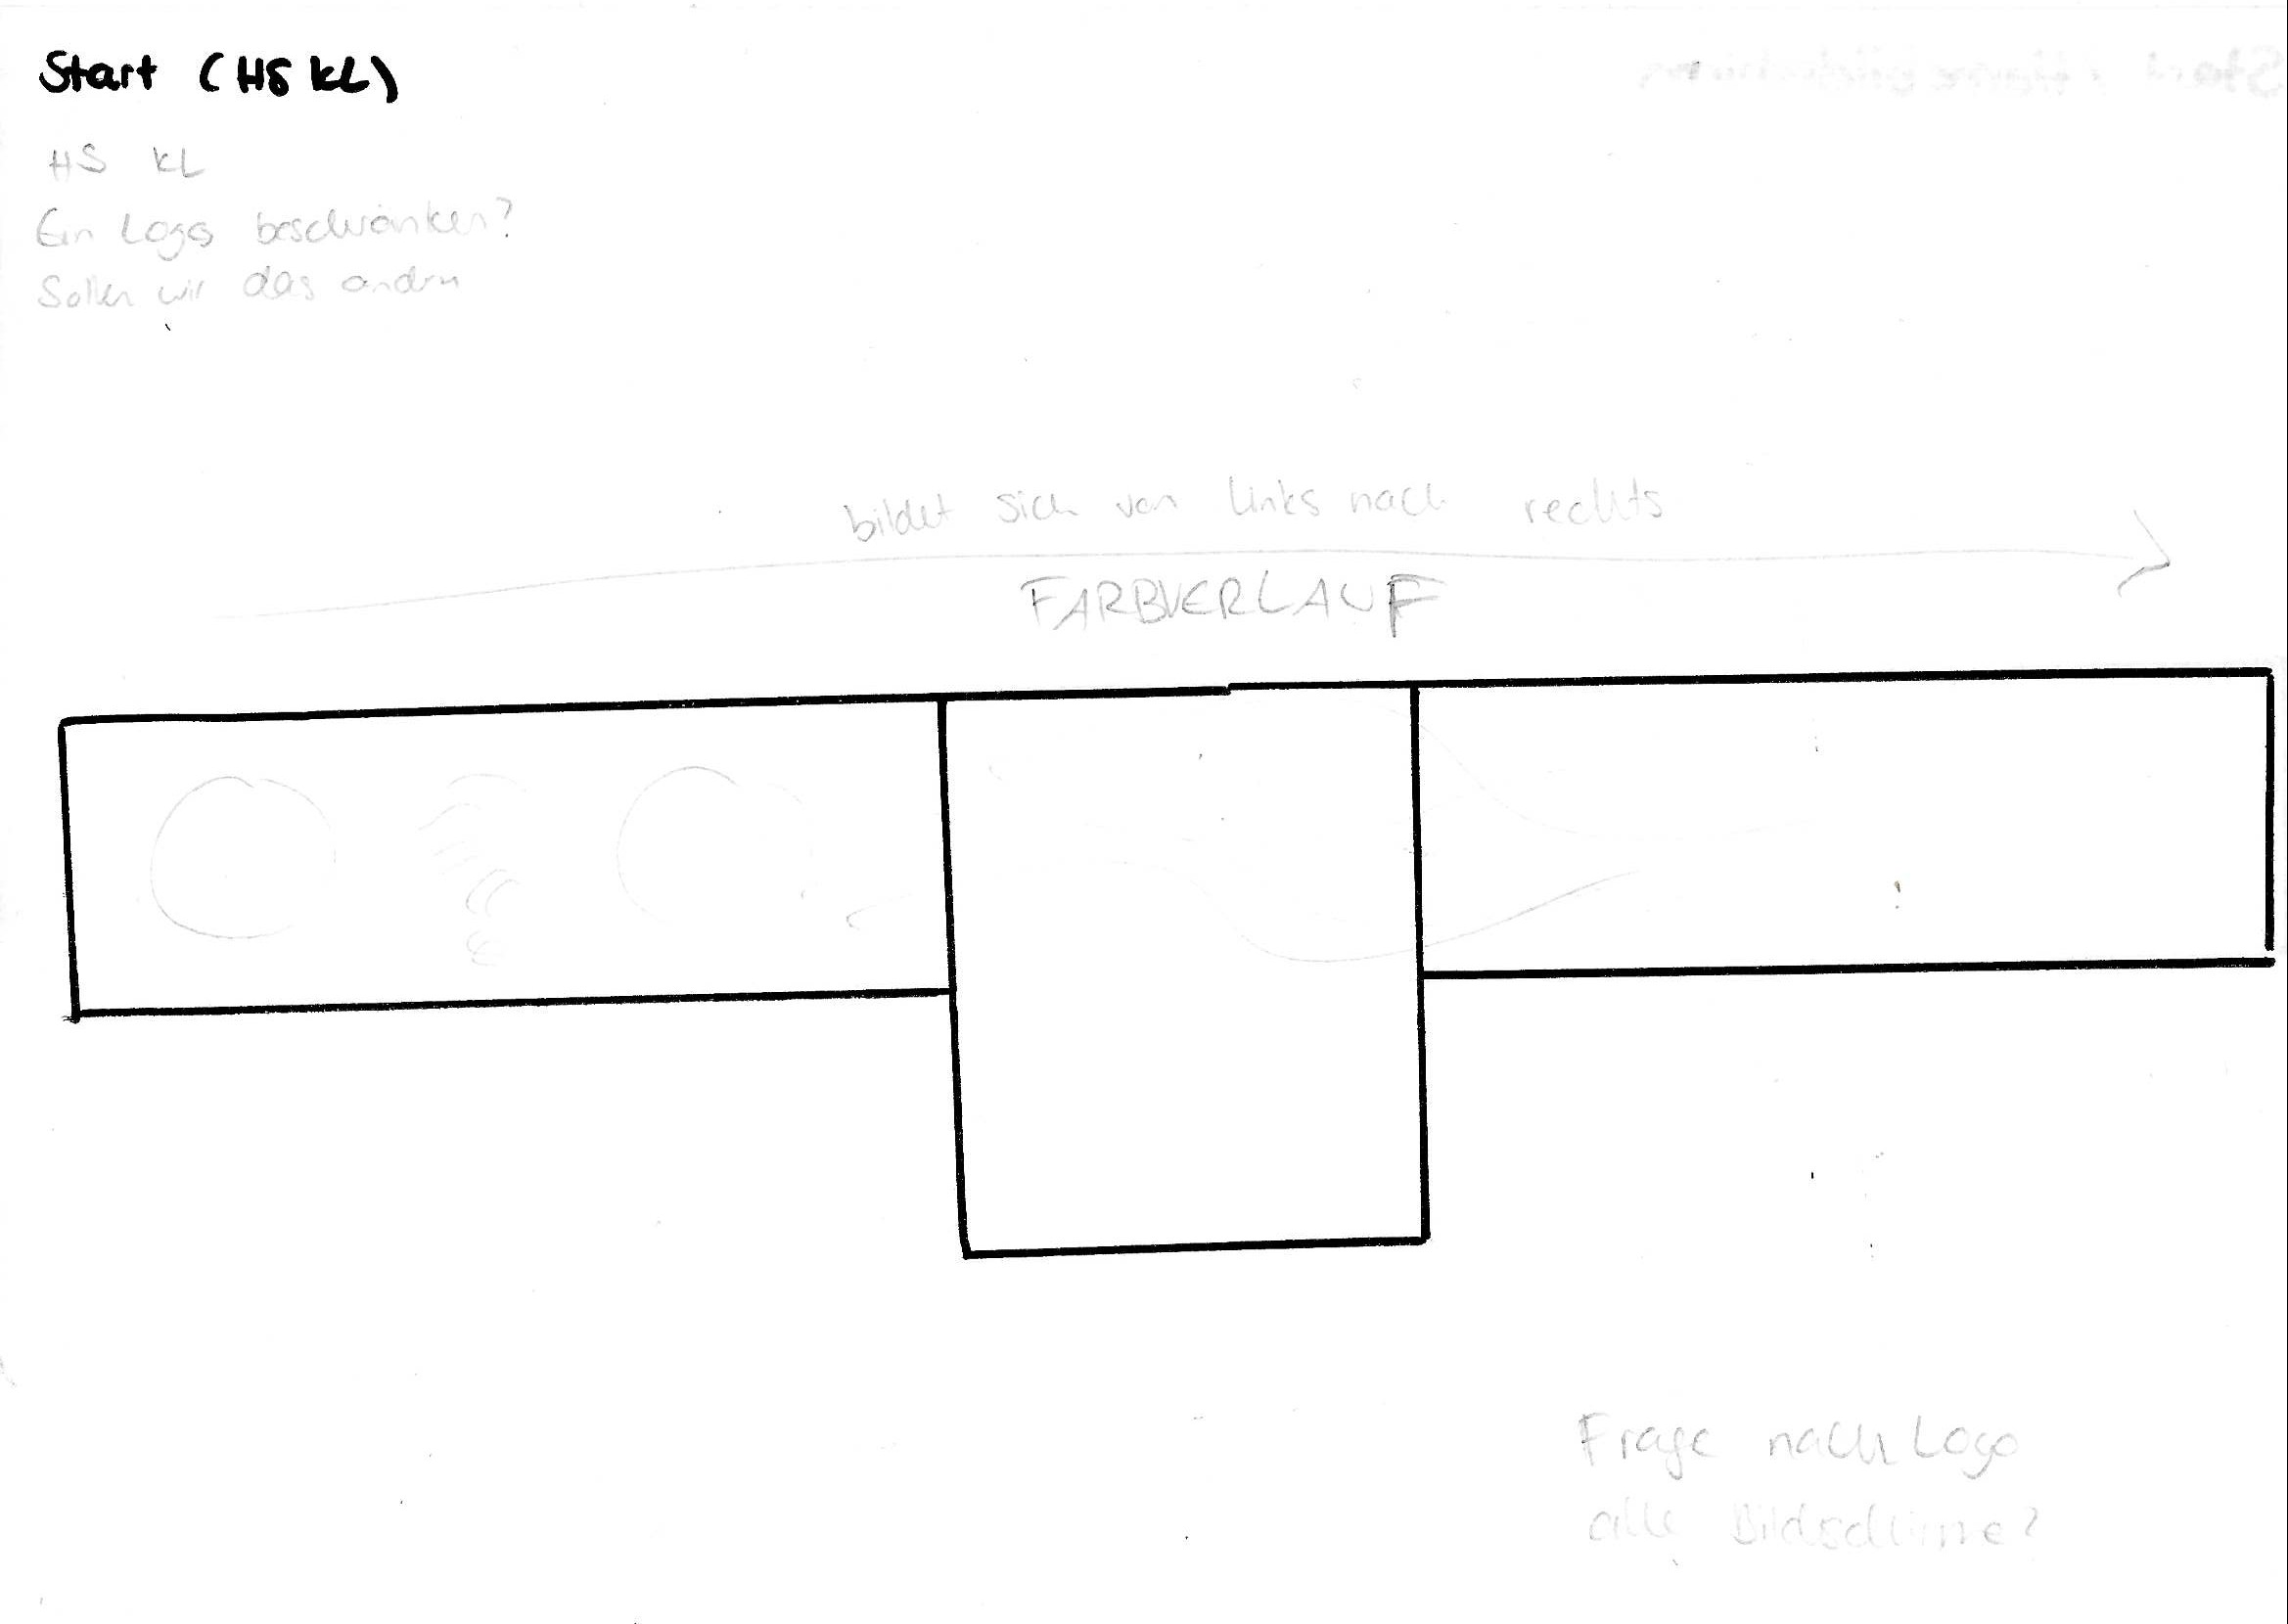 Start (HS KL)
HS KL
Ein Logo beschränken?
Sollen wir das andern
bildet sich von links nach rechts
FARBVERLAUF
Frage nach Logo
alle Bildschirme?